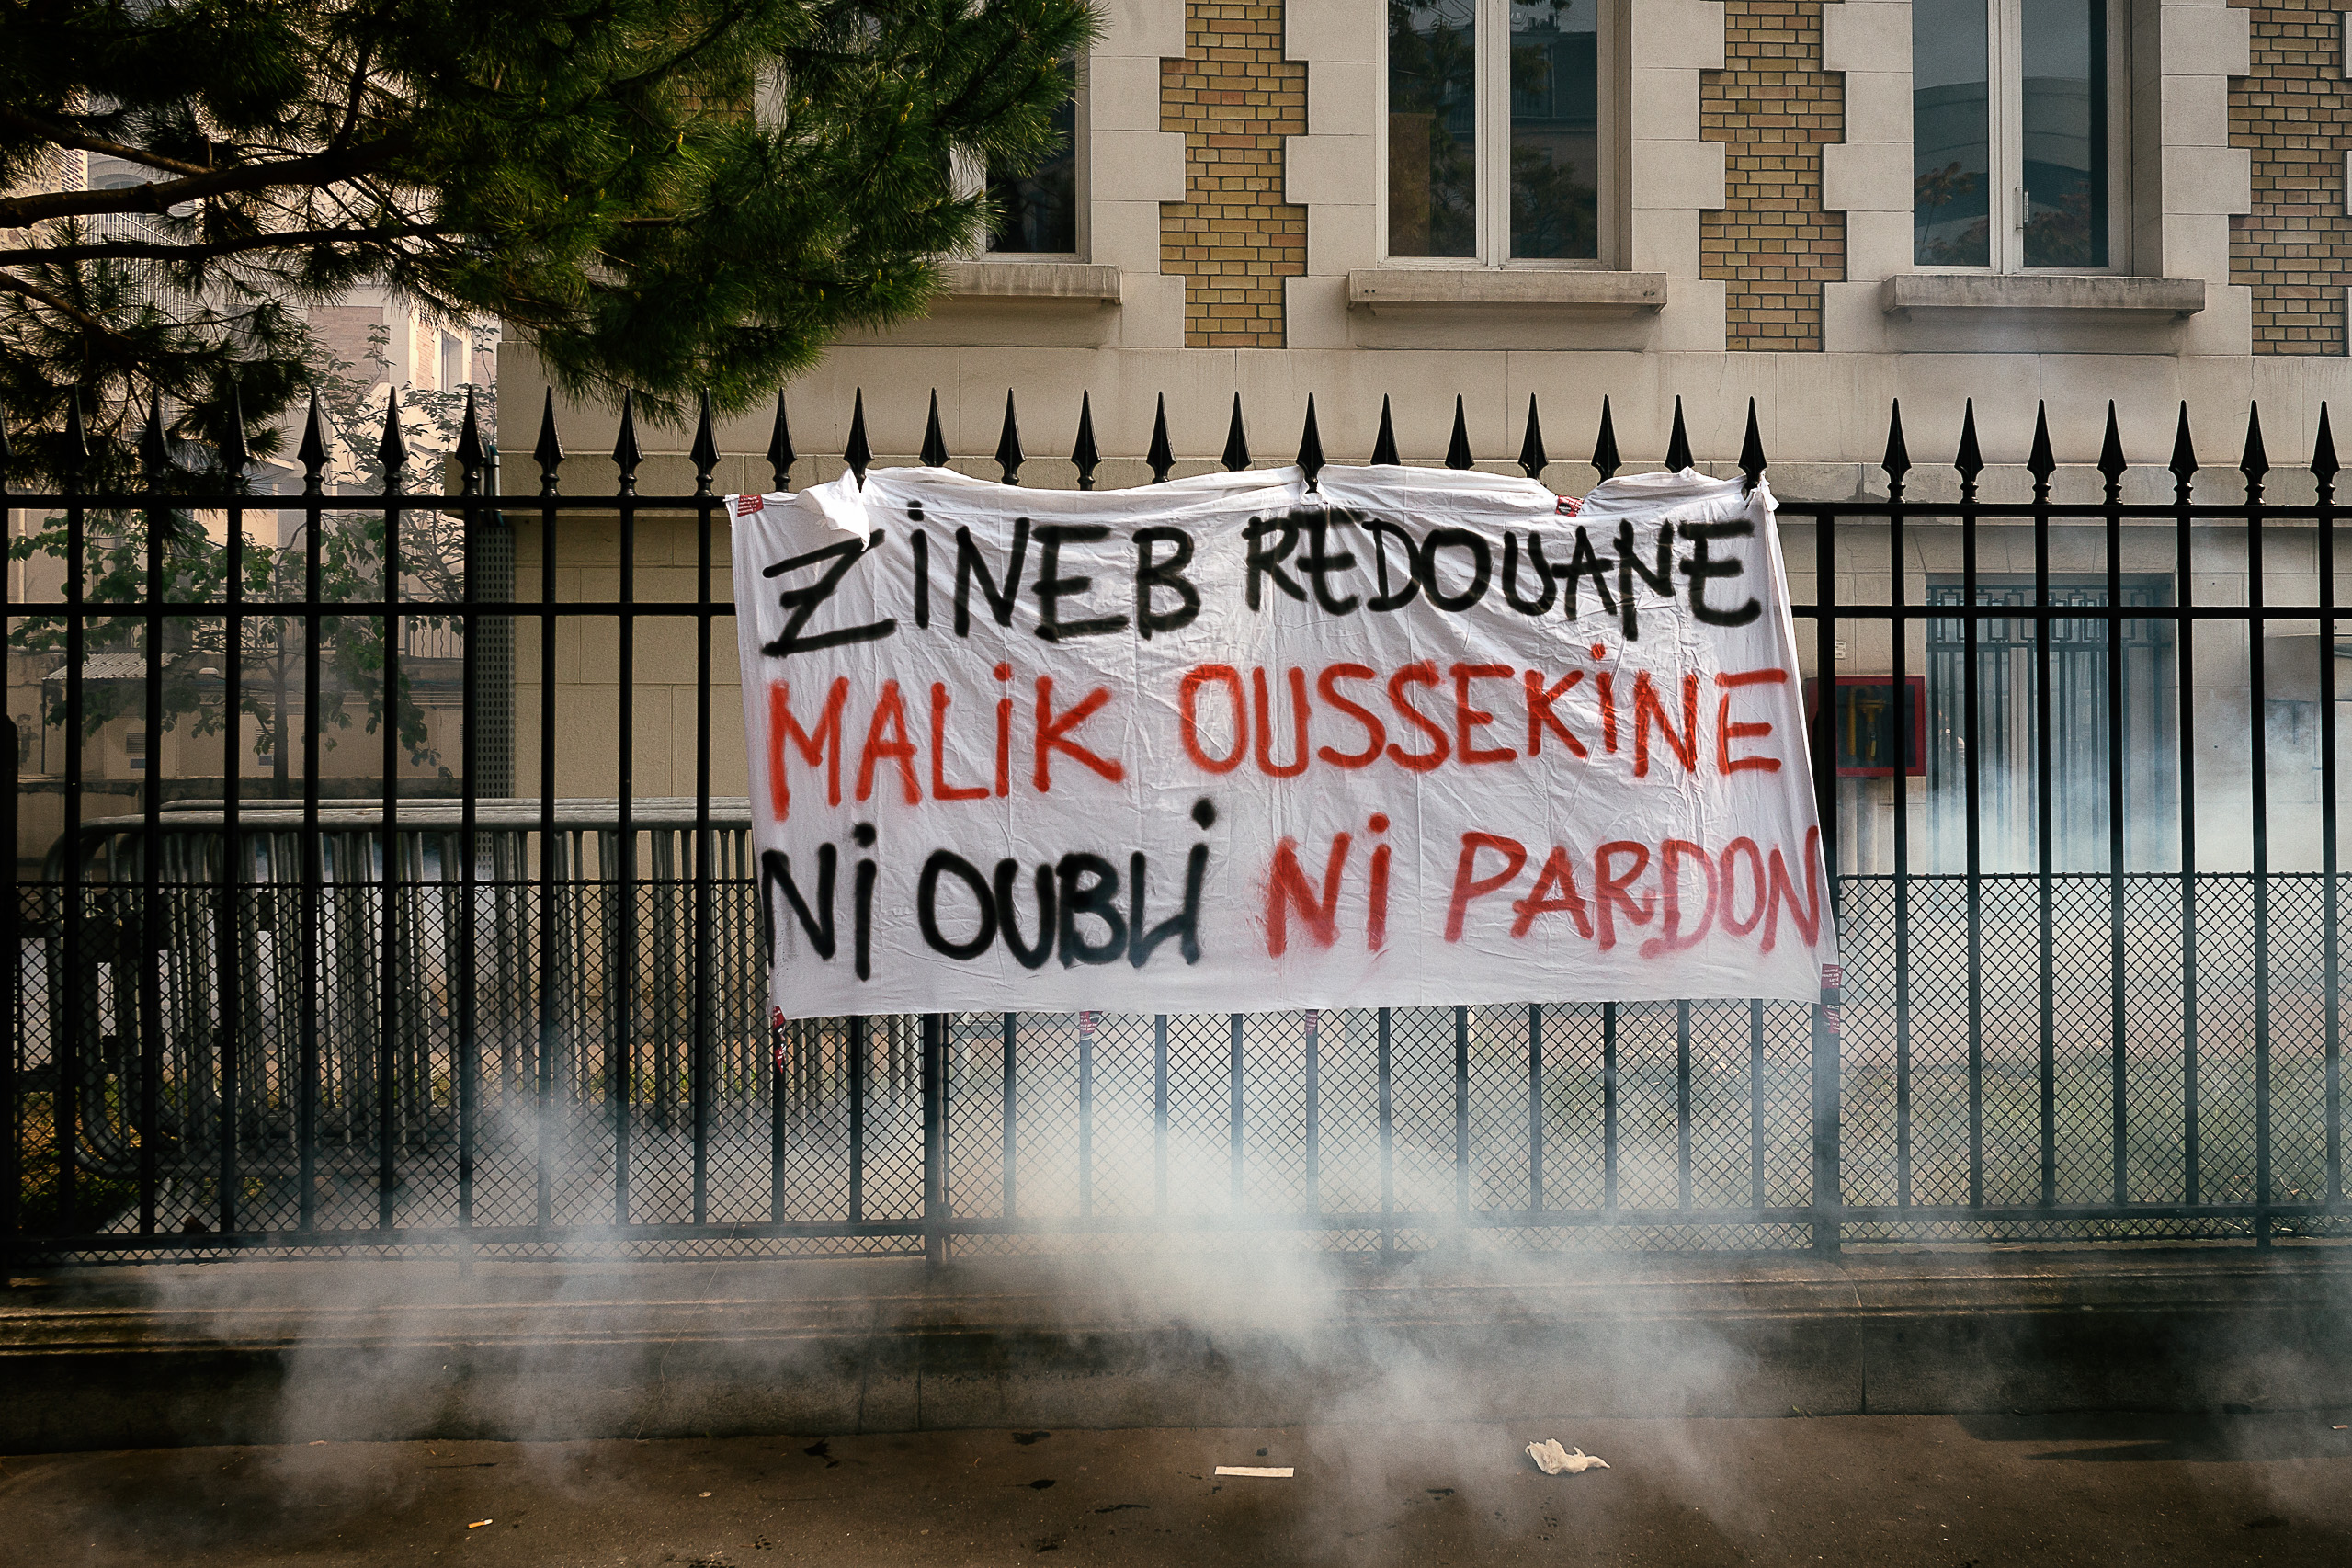 ZiNEB REDOUANE
MALiK OUSSEKiNE
Ni OUBLi Ni PARDON